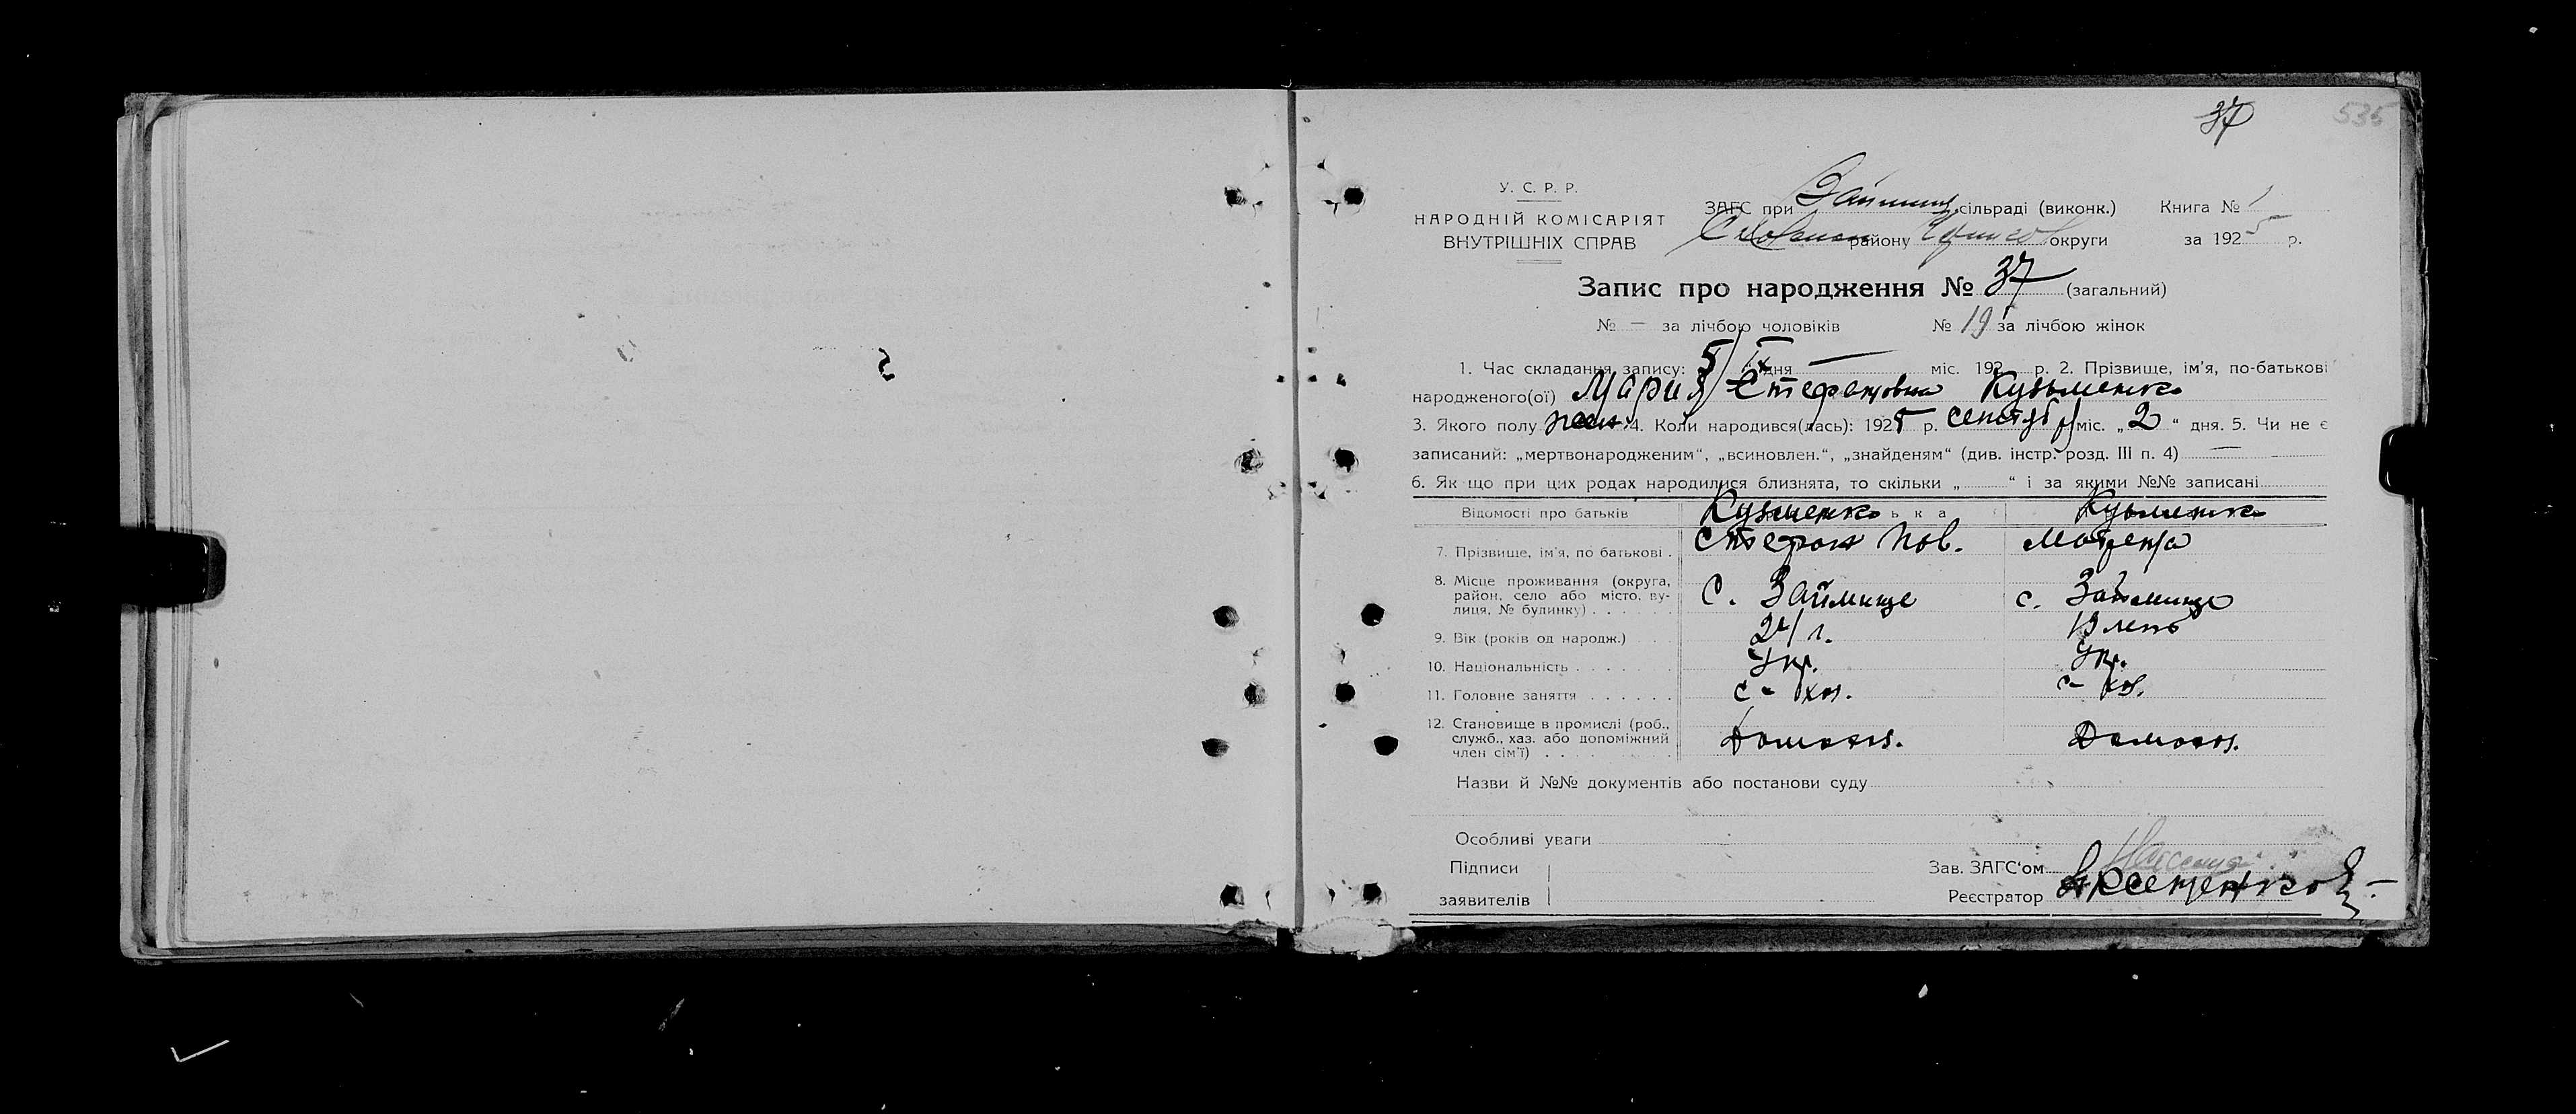 37 535
У. С. Р. Р.
НАРОДНІЙ КОМІСАРІЯТ
ВНУТРІШНІХ СПРАВ
ЗАГС при Займищ. сільраді (виконк.) Книга № 1
району округи за 1925 р.
Запис про народження № 37 (загальний)
№ — за лічбою чоловіків № 19 за лічбою жінок
1. Час складання запису: 5/IX дня — міс. 192 р. 2. Прізвище, ім'я, по-батькові
народженого(ої) Мария Стефановна Кузьменко
3. Якого полу жен. 4. Коли народився(лась): 1925 р. сентября міс. „2“ дня. 5. Чи не є
записаний: „мертвонародженим“, „всиновлен.“, „знайденям“ (див. інстр. розд. III п. 4) —
6. Як що при цих родах народилися близнята, то скільки „ “ і за якими №№ записані
Відомості про батьків Кузменко ька Кузьменко
7. Прізвище, ім'я, по батькові . Стефан Пав. Матрена
8. Місце проживання (округа,
район, село або місто, ву-
лиця, № будинку) . . . . . с. Займище с. Займище
9. Вік (років од народж.) 24 г. 19 лет
10. Національність . . . . . . Укр. Укр.
11. Головне заняття . . . . . . с-хоз. с-хоз.
12. Становище в промислі (роб.,
служб., хаз. або допоміжний
член сім'ї) . . . . . . . . . Домохоз. Домохоз.
Назви й №№ документів або постанови суду
Особливі уваги
Підписи Зав. ЗАГС'ом
заявителів Реєстратор Арсененко